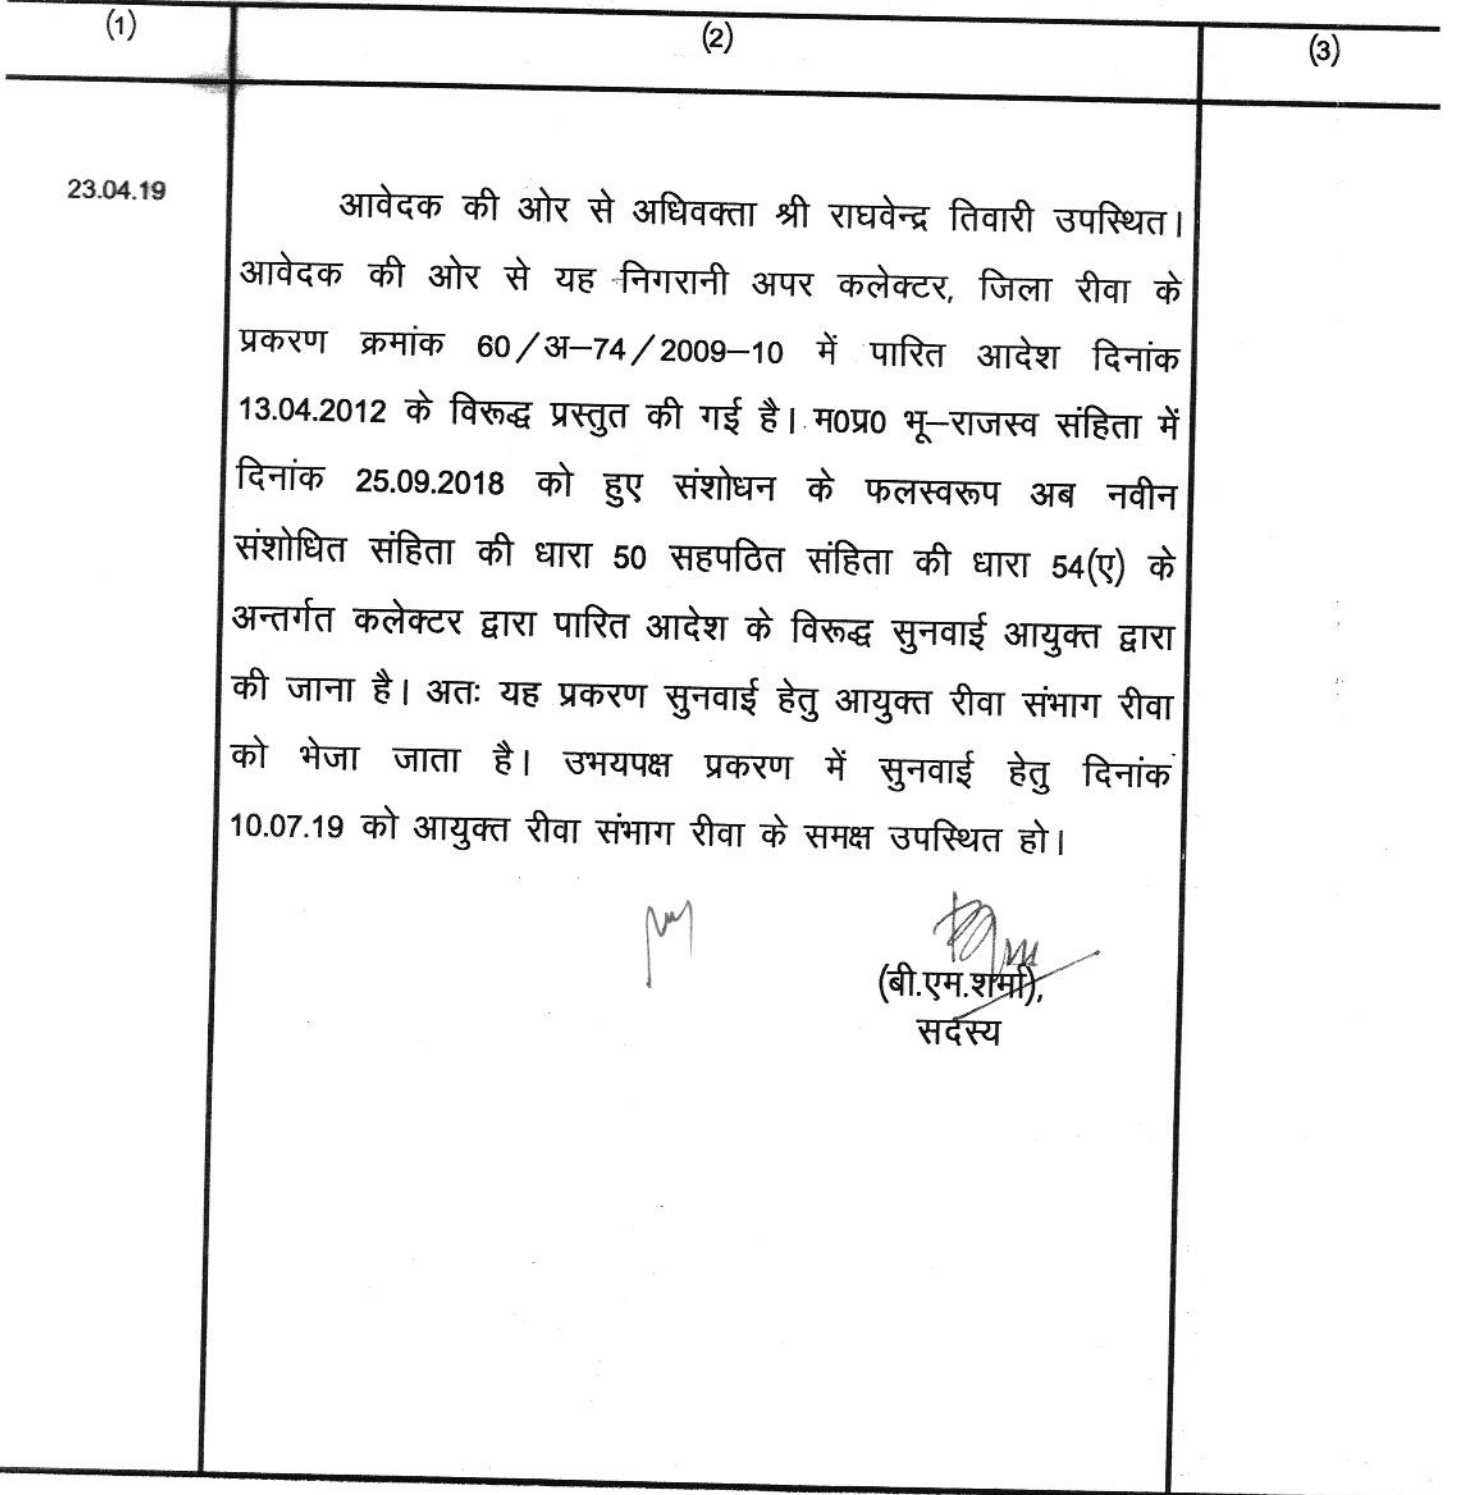 (1)
(2)
(3)
23.04.19
आवेदक की ओर से अधिवक्ता श्री राघवेन्द्र तिवारी उपस्थित।
आवेदक की ओर से यह निगरानी अपर कलेक्टर, जिला रीवा के
प्रकरण क्रमांक 60/अ–74/2009–10 में पारित आदेश दिनांक
13.04.2012 के विरूद्ध प्रस्तुत की गई है। म0प्र0 भू–राजस्व संहिता में
दिनांक 25.09.2018 को हुए संशोधन के फलस्वरूप अब नवीन
संशोधित संहिता की धारा 50 सहपठित संहिता की धारा 54(ए) के
अन्तर्गत कलेक्टर द्वारा पारित आदेश के विरूद्ध सुनवाई आयुक्त द्वारा
की जाना है। अतः यह प्रकरण सुनवाई हेतु आयुक्त रीवा संभाग रीवा
को भेजा जाता है। उभयपक्ष प्रकरण में सुनवाई हेतु दिनांक
10.07.19 को आयुक्त रीवा संभाग रीवा के समक्ष उपस्थित हो।
(बी.एम.शर्मा),
सदस्य